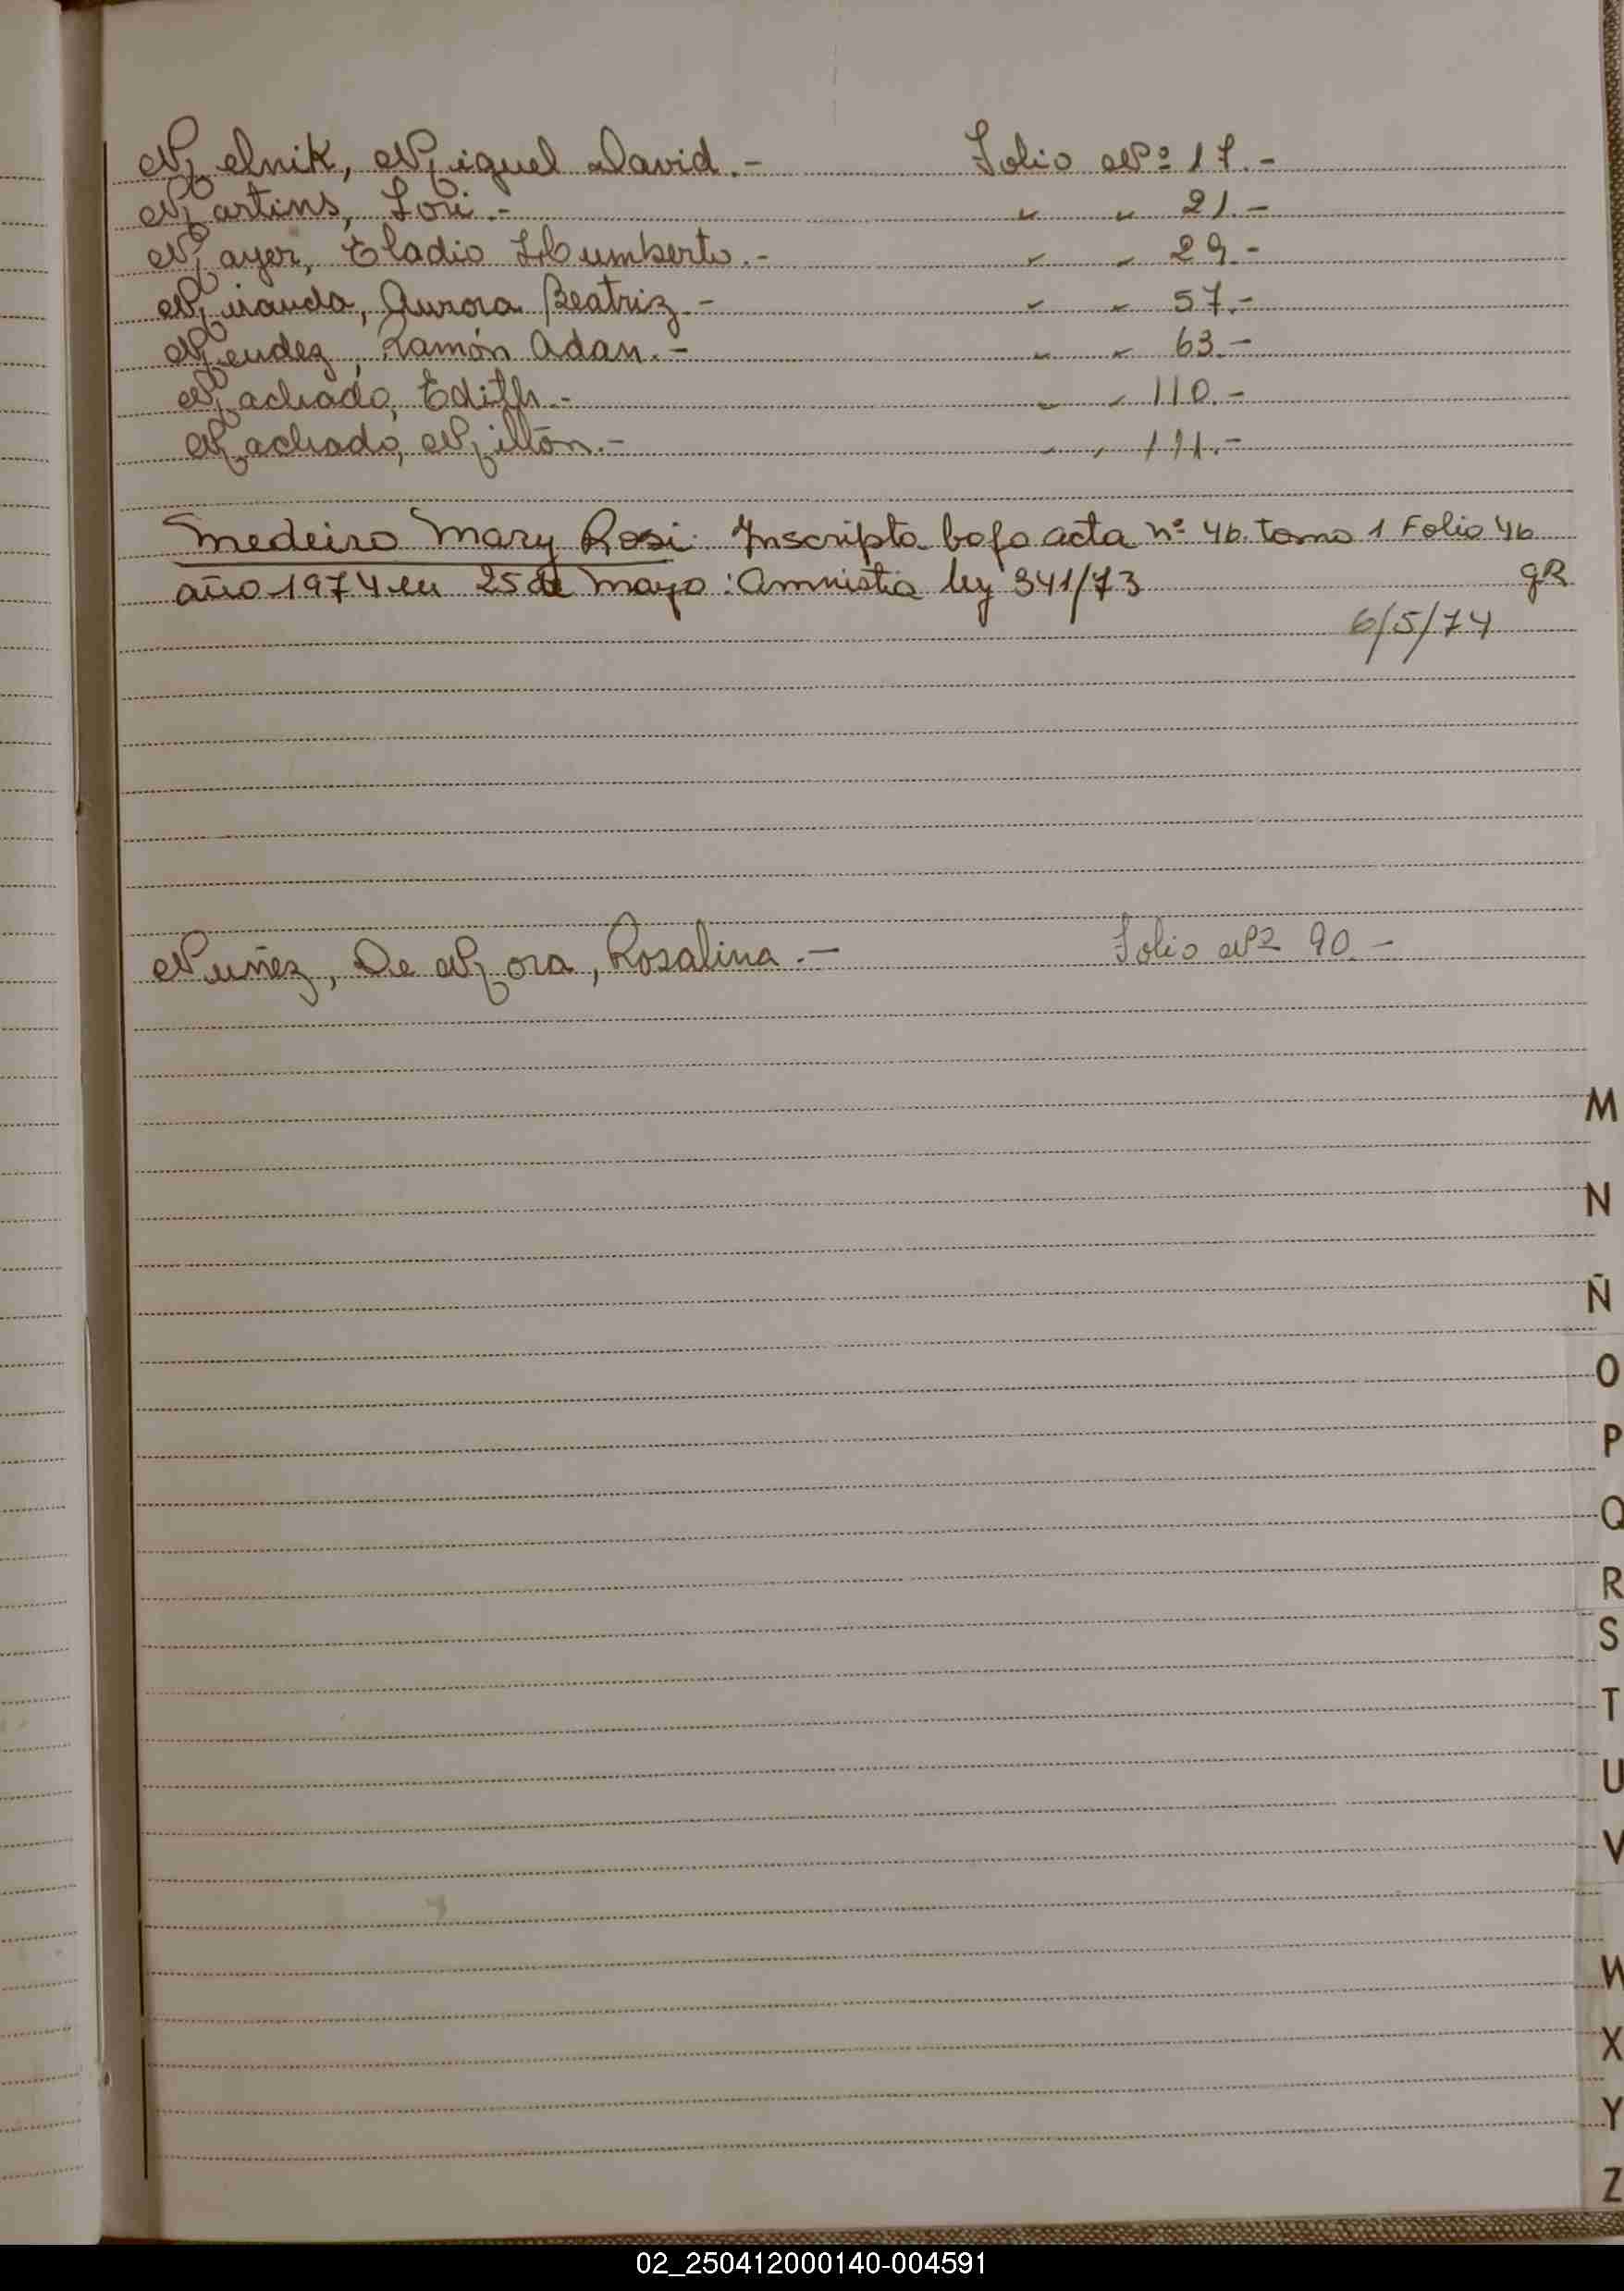 Melnik, Miguel David.- Folio Nº 17.-
Martins, Lori.- " " 21.-
Mayer, Eladio Humberto.- " " 29.-
Miranda, Aurora Beatriz.- " " 57.-
Mendez, Ramón Adan.- " " 63.-
Machado, Edith.- " " 110.-
Machado, Miltón.- " " 111.-
Medeiro Mary Rosi. Inscripta bajo acta nº 46 tomo 1 Folio 46
año 1974 en 25 de Mayo: Amnistia ley 341/73 gR
6/5/74
Nuñez, De Mora, Rosalina.- Folio Nº 90.-
M
N
Ñ
O
P
Q
R
S
T
U
V
W
X
Y
Z
02_250412000140-004591